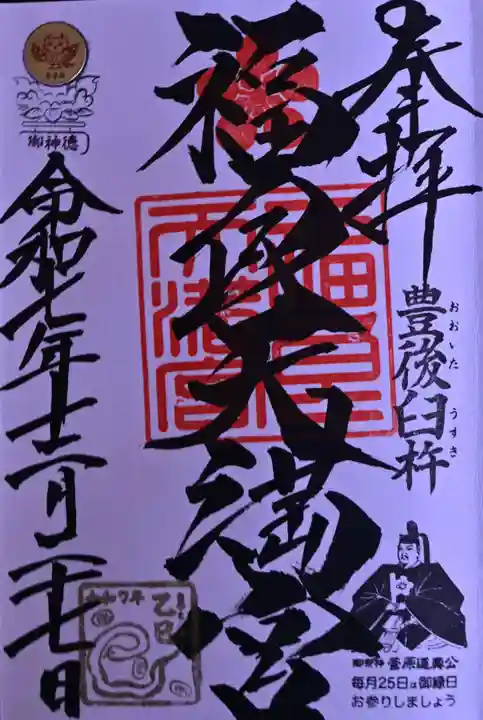 奉拝
豊後臼杵
おおいた うすき
福良天満宮
福良天満宮
御祭神 菅原道真公
毎月25日は御縁日
お参りしましょう
御神徳
令和七年十二月二十七日
令和7年
乙巳